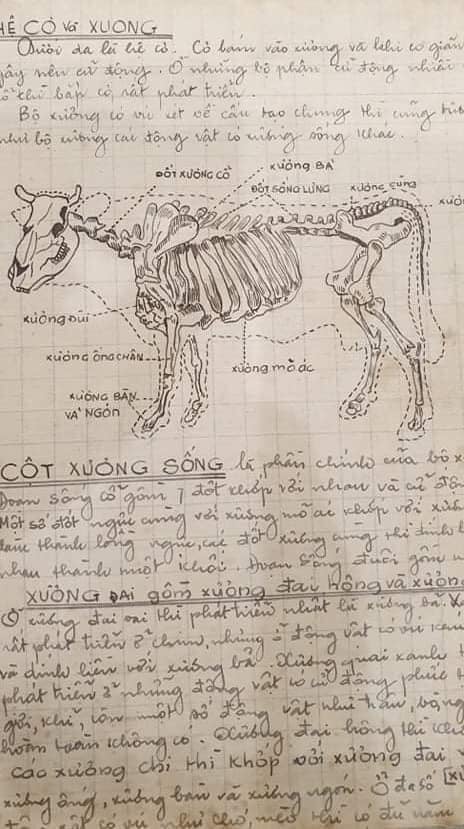 HỆ CỎ Và XƯƠNG
Dưới da là hệ cỏ. Cỏ bám vào xương và khi co giãn
gây nên cử động. Ở những bộ phận cử động nhiều
thì bắp cỏ rất phát triển.
Bộ xương có vú xét về cấu tạo chung thì cũng
như bộ xương các động vật có xương sống khác.
XƯƠNG BẢ
ĐỐT XƯƠNG CỔ
ĐỐT SỐNG LƯNG
XƯƠNG CÙNG
XƯƠNG ĐÙI
XƯƠNG ỐNG CHÂN
XƯƠNG MỎ ÁC
XƯƠNG BÀN
VÀ NGÓN
CỘT XƯƠNG SỐNG là phần chính của bộ x
Đoạn sống cổ gồm 7 đốt khớp với nhau và cử độn
Một số đốt ngực cùng với xương mỏ ác khớp với xươn
làm thành lồng ngực, các đốt xương cùng thì dính l
nhau thành một khối. Đoạn sống đuôi gồm n
XƯƠNG ĐAI gồm xương đai hông và xương
Ở xương đai vai thì phát triển nhất là xương bả. X
rất phát triển ở chim, nhưng ở động vật có vú kém
và dính liền với xương bả. Xương quai xanh t
phát triển ở những động vật có cử động phức t
gối, khỉ, còn một số động vật như trâu, bò, ng
hoàn toàn không có. Xương đai hông thì khớ
các xương chi thì khớp với xương đai
xương ống, xương bàn và xương ngón. Ở đa số
có vú như chó, mèo thì có đủ năm